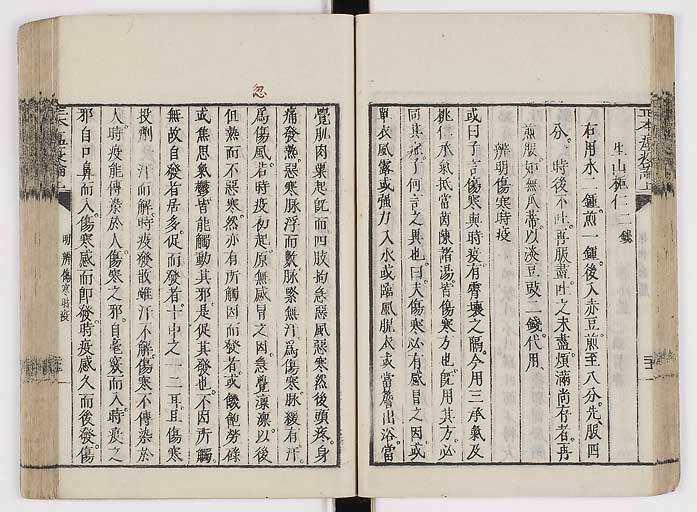 生山梔仁二錢
右用水二鍾煎一鍾後入赤豆煎至八分先服四
分一時後不吐再服盡吐之未盡煩滿尚存者再
煎服如無瓜蒂以淡豆豉二錢代用
辨明傷寒時疫
或曰子言傷寒與時疫有霄壤之隔今用三承氣及
桃仁承氣抵當茵陳諸湯皆傷寒方也既用其方必
同其症子何言之異也曰夫傷寒必有感冒之因或
單衣風露或強力入水或臨風脫衣或當簷出浴當
覺肌肉粟起既而四肢拘急惡風惡寒然後頭疼身
痛發熱惡寒脉浮而數脉緊無汗為傷寒脉緩有汗
為傷風若時疫初起原無感冒之因忽覺凛凛以後
但熱而不惡寒然亦有所觸因而發者或饑飽勞碌
或焦思氣鬱皆能觸動其邪是促其發也不因所觸
無故自發者居多促而發者十中之一二耳且傷寒
投劑 汗而解時疫發散雖汗不解傷寒不傳染於
人時疫能傳染於人傷寒之邪自毫竅而入時疫之
邪自口鼻而入傷寒感而即發時疫感久而後發傷
明辨傷寒時疫
忽